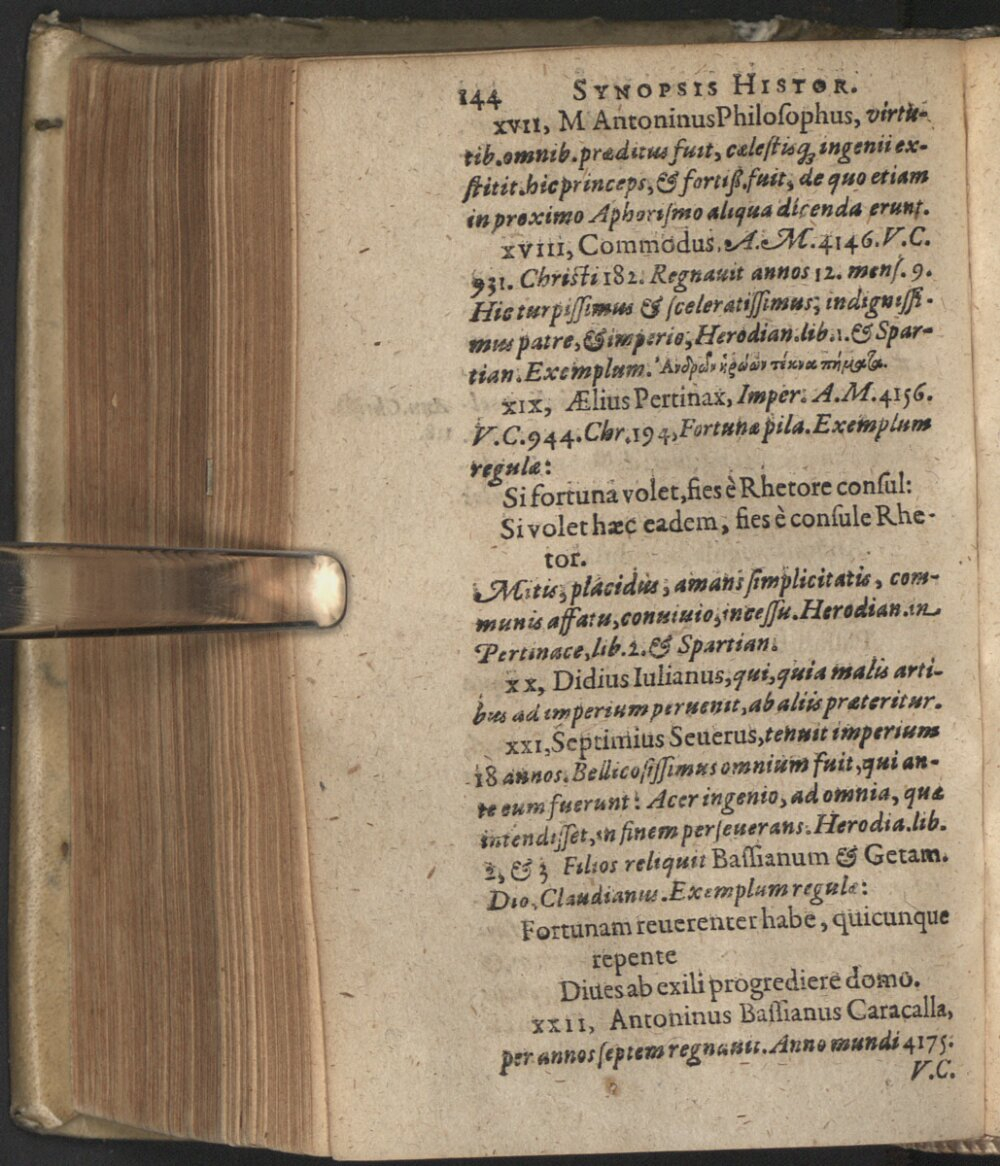 144 SYNOPSIS HISTOR.
XVII, M AntoninusPhiloſophus, virtu-
tib.omnib.præditus fuit, cæleſtisq́; ingenii ex-
ſtitit.hic princeps, & fortiß.fuit, de quo etiam
in proximo Aphoriſmo aliqua dicenda erunt.
XVIII, Commodus. A.M.4146.V.C.
931. Chriſti 182. Regnauit annos 12. menſ. 9.
Hic turpiſſimus & ſceleratiſſimus, indigniſſi-
mus patre, & imperio, Herodian.lib.1.& Spar-
tian. Exemplum. Ἀνδρῶν ἡρώων τέκνα πήματα.
XIX, Ælius Pertinax, Imper. A.M.4156.
V.C.944.Chr.194, Fortunæ pila. Exemplum
regulæ:
Si fortuna volet, fies è Rhetore conſul:
Si volet hæc eadem, fies è conſule Rhe-
tor.
Mitis, placidus, amans ſimplicitatis, com-
munis affatu, conuiuio, inceſſu. Herodian.in
Pertinace, lib. 2. & Spartian.
XX, Didius Iulianus, qui, quia malis arti-
bus ad imperium peruenit, ab aliis præteritur.
XXI, Septimius Seuerus, tenuit imperium
18 annos. Bellicoſiſſimus omnium fuit, qui an-
te eum fuerunt: Acer ingenio, ad omnia, quæ
intendiſſet, in finem perſeuerans. Herodia.lib.
2, & 3 Filios reliquit Baſſianum & Getam.
Dio, Claudianus. Exemplum regulæ:
Fortunam reuerenter habe, quicunque
repente
Diues ab exili progrediere domo.
XXII, Antoninus Baſſianus Caracalla,
per annos ſeptem regnauit. Anno mundi 4175.
V.C.